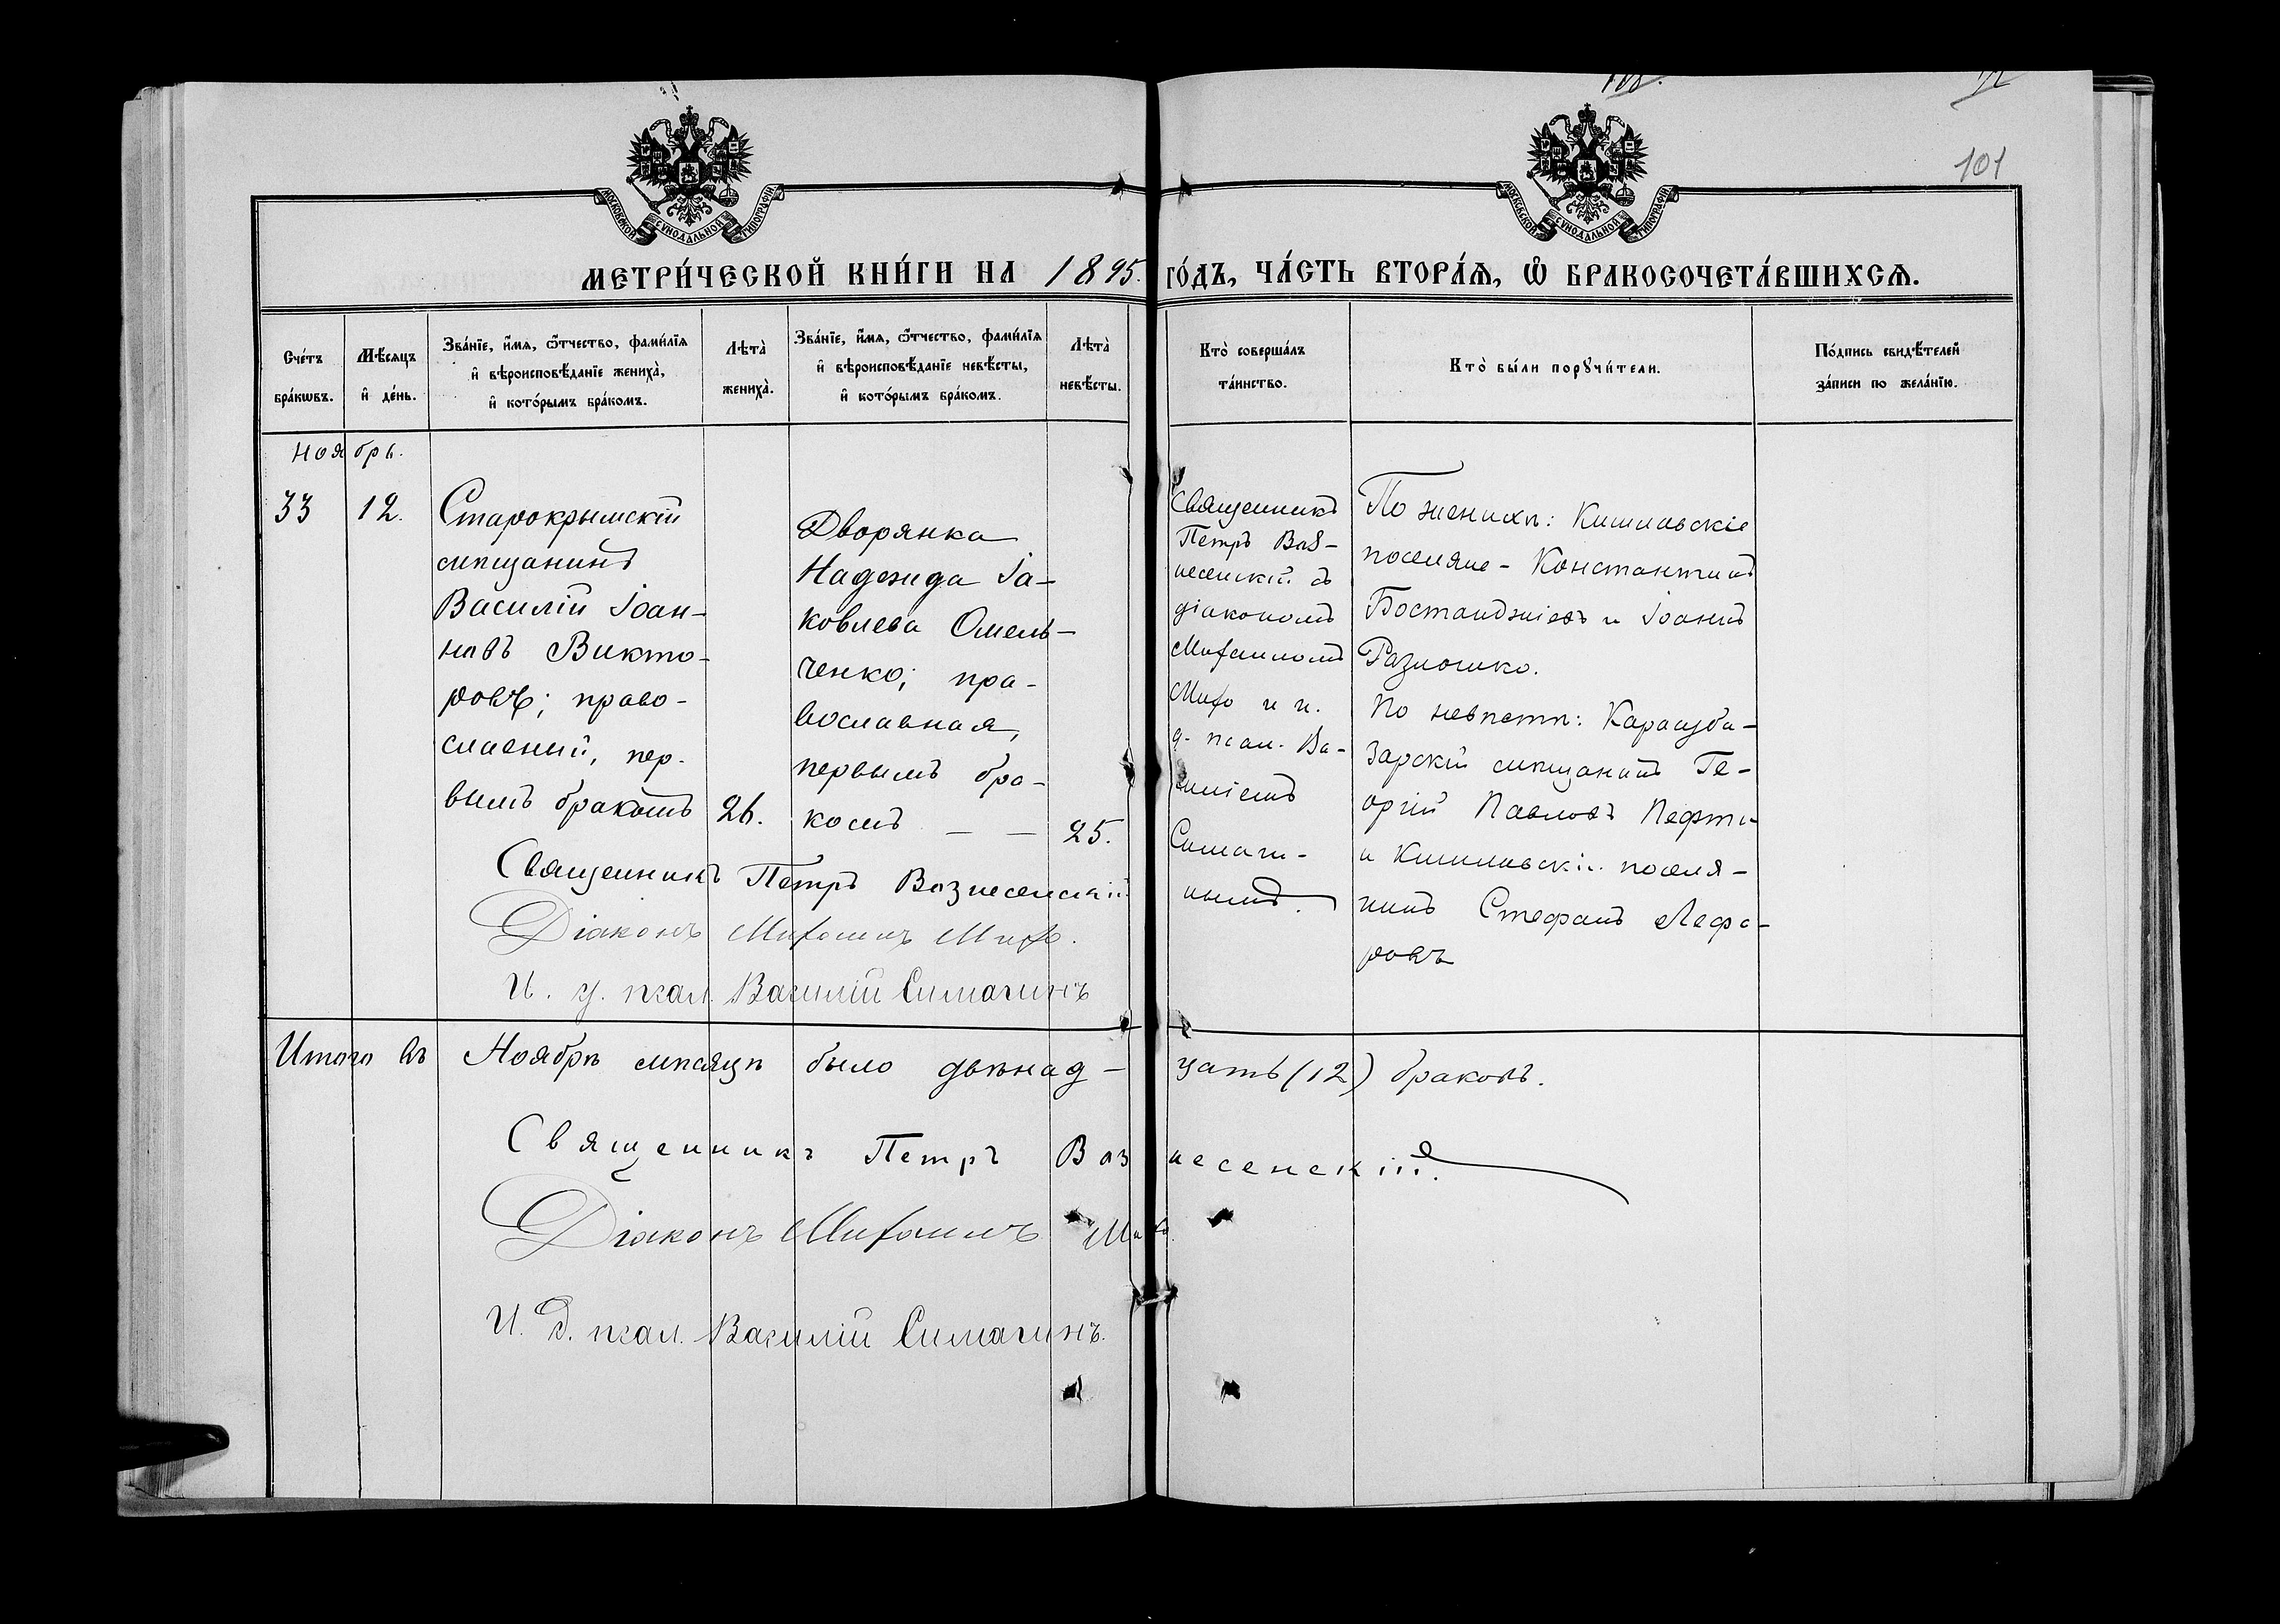 101
МОСКОВСКОЙ СУНОДАЛЬНОЙ ТИПОГРАФІИ
МОСКОВСКОЙ СУНОДАЛЬНОЙ ТИПОГРАФІИ
МЕТРИ́ЧЕСКОЙ КНИ́ГИ НА 1895. ГО́ДЪ, ЧА́СТЬ ВТОРА́Ѧ, Ѽ БРАКОСОЧЕТА́ВШИХСѦ.
Сче́тъ бра́кωвъ.
Мѣ́сяцъ и҆ де́нь.
Зва́нїе, и҆́мѧ, ѻ҆́тчество, фами́лїѧ и҆ вѣроисповѣ́данїе жениха̀, и҆ кото́рымъ бра́комъ.
Лѣта̀ жениха̀.
Зва́нїе, и҆́мѧ, ѻ҆́тчество, фами́лїѧ и҆ вѣроисповѣ́данїе невѣ́сты, и҆ кото́рымъ бра́комъ.
Лѣта̀ невѣ́сты.
Кто̀ соверша́лъ та́инство.
Кто̀ бы́ли порꙋчи́тели.
По́дпись свидѣ́телей за́писи по жела́нїю.
Ноябрь.
33
12.
Старокрымскій
мѣщанинъ
Василій Іоан-
новъ Викто-
ровъ; право-
славный, пер-
вымъ бракомъ
26.
Дворянка
Надежда Іа-
ковлева Омель-
ченко; пра-
вославная,
первымъ бра-
комъ — —
25.
Священникъ
Петръ Воз-
несенскій съ
діакономъ
Михаиломъ
Михо и и.
д. псал. Ва-
силіемъ
Симаги-
нымъ.
По женихѣ: Кишлавскіе
поселяне - Константинъ
Бостанджіевъ и Іоаннъ
По невѣстѣ: Карасуба-
зарскій мѣщанинъ Ге-
оргій Павловъ
и Кишлавскій поселя-
нинъ Стефанъ
Священникъ Петръ Вознесенскій
Діаконъ Михаилъ Михо.
И. д. псал. Василій Симагинъ
Итого въ Ноябрѣ мѣсяцѣ было двѣнад-цать (12) браковъ.
Священникъ Петръ Вознесенскій.
Діаконъ Михаилъ Михо.
И. Д. псал. Василій Симагинъ.